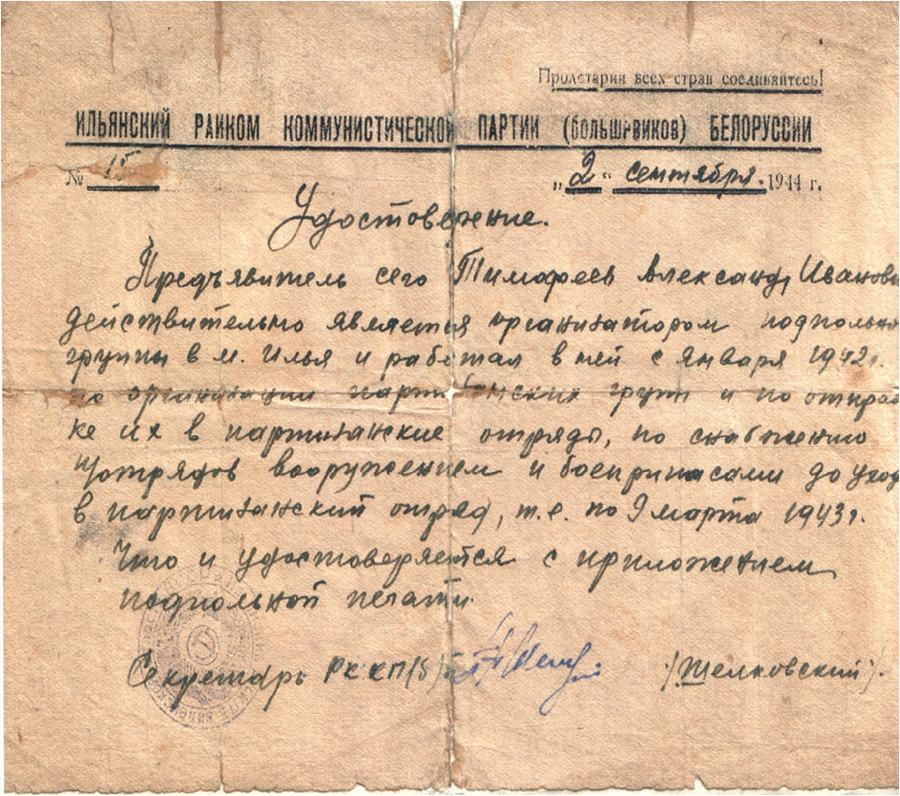 Пролетарии всех стран соединяйтесь!
ИЛЬЯНСКИЙ РАЙКОМ КОММУНИСТИЧЕСКОЙ ПАРТИИ (большевиков) БЕЛОРУССИИ
№ 15 „2“ сентября. 1944 г.
Удостоверение.
Предъявитель сего Тимофеев Александр Иванови
действительно является организатором подпольно
группы в м. Илья и работал в ней с января 1942г.
по организации партизанских групп и по отправ
ке их в партизанские отряды, по снабжению
отрядов вооружением и боеприпасами до уход
в партизанский отряд, т.е. по 9 марта 1943г.
Что и удостоверяется с приложением
подпольной печати.
Секретарь РК КП(б)Б /Шелковский/.